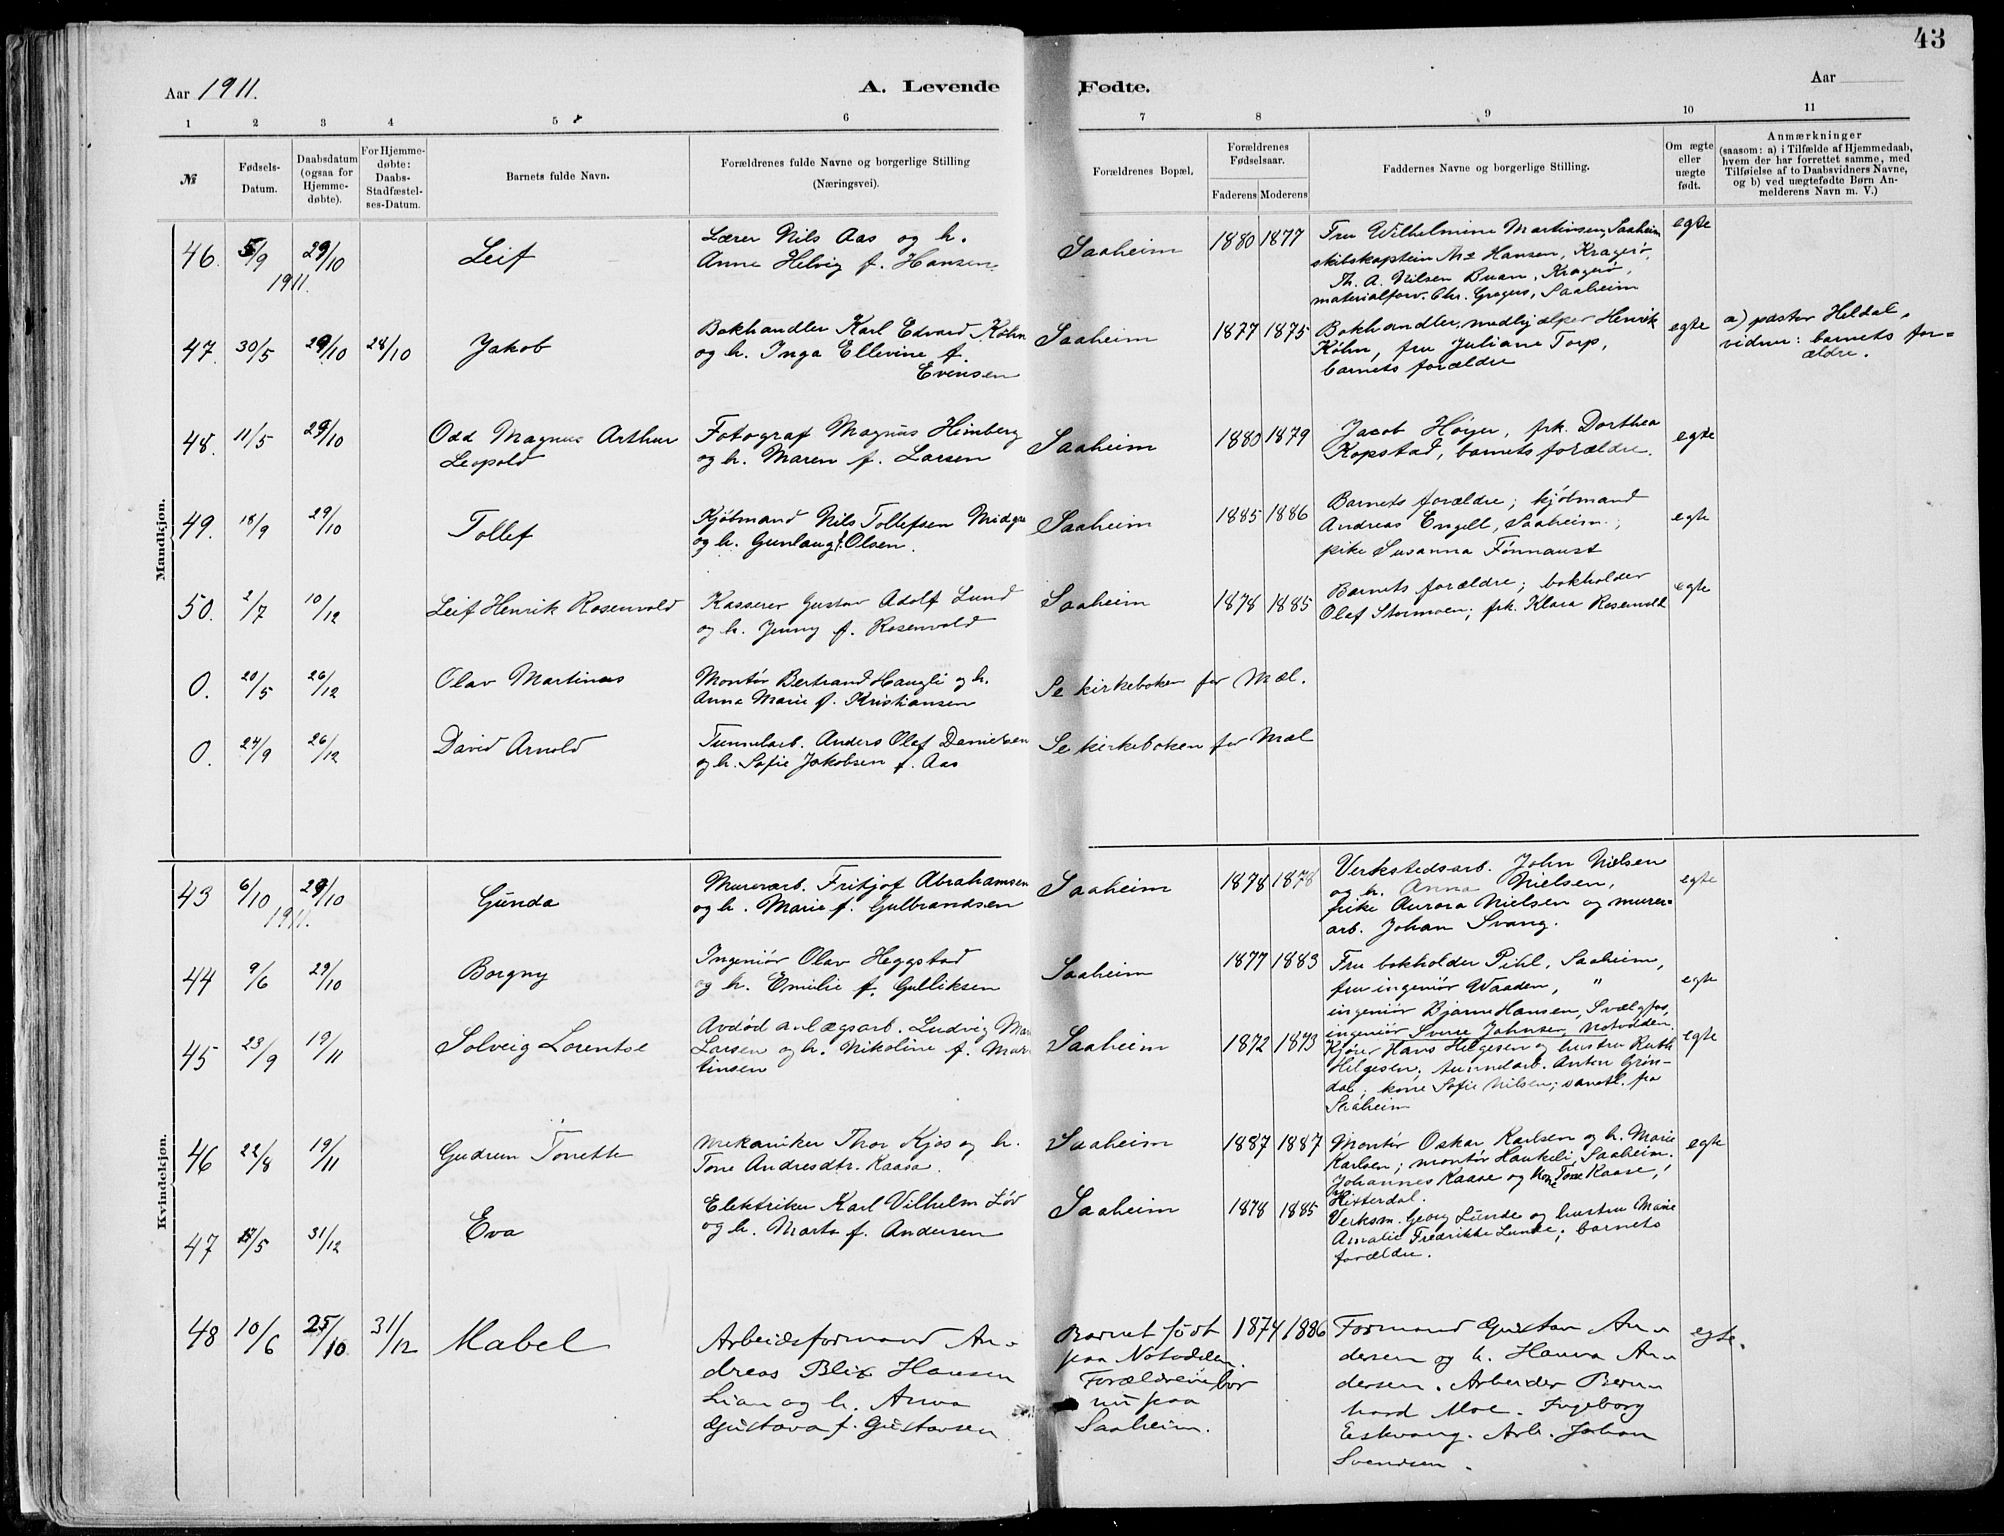 43
Aar 1911.
A. Levende Fødte.
Aar
1 2 3 4 5 6 7 8 9 10 11
№
Fødsels-
Datum.
Daabsdatum
(ogsaa for
Hjemme-
døbte).
For Hjemme-
døbte:
Daabs-
Stadfæstel-
ses-Datum.
Barnets fulde Navn.
Forældrenes fulde Navne og borgerlige Stilling
(Næringsvei).
Forældrenes Bopæl.
Forældrenes
Fødselsaar.
Faderens Moderens
Faddernes Navne og borgerlige Stilling.
Om ægte
eller
uægte
født.
Anmærkninger
(saasom: a) i Tilfælde af Hjemmedaab,
hvem der har forrettet samme, med
Tilføielse af to Daabsvidners Navne,
og b) ved uægtefødte Børn An-
melderens Navn m. V.)
Mandkjøn.
46. 5/9 29/10
1911.
Leif
Lærer Nils Aas og h.
Anne Helvig f. Hansen
Saaheim
1880 1877
Fru Wilhelmine Martinsen, Saaheim
skibskaptein Ths Hansen, Kragerø,
Th. A. Nilsen Buan, Kragerø,
materialforv. Chr. Grøgers, Saaheim
egte
47. 30/5 29/10 28/10
Jakob
Bokhandler Karl Edvard Køhn
og h. Inga Ellevine f.
Evensen
Saaheim
1877 1875
Bokhandlermedhjælper Henrik
Køhn, fru Juliane Torp,
barnets forældre
egte
a) pastor Heldal,
vidner: barnets for-
ældre.
48. 11/5 29/10
Odd Magnus Arthur
Leopold
Fotograf Magnus Himberg
og h. Maren f. Larsen
Saaheim
1880 1879
Jacob Høyer, frk. Dorthea
Kopstad, barnets forældre.
egte
49. 18/9 29/10
Tollef
Kjøbmand Nils Tollefsen Midgra
og h. Gunlaug f. Olsen.
Saaheim
1885 1886
Barnets forældre; kjøbmand
Andreas Engelt, Saaheim;
pike Susanna Fønnaust
egte
50. 2/7 10/12
Leif Henrik Rosenvold
Kasserer Gustav Adolf Lund
og h. Jenny f. Rosenvold
Saaheim
1878 1885
Barnets forældre; bokholder
Olaf Stormoen; frk. Klara Rosenvold
egte
0. 20/5 26/12
Olav Martinus
Montør Bertrand Haugli og h.
Anna Marie f. Kristiansen
Se kirkeboken for Mæl.
0. 24/9 26/12
David Arnold
Tunnelarb. Anders Olaf Danielsen
og h. Sofie Jakobsen f. Aas
Se kirkeboken for Mæl
Kvindekjøn.
43 6/10 29/10
1911.
Gunda
Murerarb. Fritjof Abrahamsen
og h. Marie f. Gulbrandsen
Saaheim
1878 1878
Verkstedsarb. John Nielsen
og h. Anna Nielsen,
pike Aurora Nielsen og murer-
arb. Johan Svang.
egte
44 9/6 29/10
Borgny
Ingeniør Olav Heggstad
og h. Emilie f. Gulliksen
Saaheim
1877 1883
Fru bokholder Pihl, Saaheim,
fru ingeniør Waaden, "
ingeniør Bjarne Hansen, Svælgfos,
ingeniør Sverre Johnsen, Notodden.
egte
45 23/9 19/11
Solveig Lorentse
Avdød anlægsarb. Ludvig Mar
Larsen og h. Nikoline f. Mar
tinsen
Saaheim
1872 1873
Kjører Hans Helgesen og hustru Ruth
Helgesen; tunnelarb. Anton Grøn-
dal; kone Sofie Nilsen; samtl. fra
Saaheim
egte
46 22/8 19/11
Gudrun Tonette
Mekaniker Thor Kjos og h.
Tone Andresdtr. Kaasa.
Saaheim
1887 1887
Montør Oskar Karlsen og h. Marie
Karlsen; montør Haukeli, Saaheim.
Johannes Kaase og kone Tone Kaase,
Hitterdal.
egte
47 17/5 31/12
Eva
Elektriker Karl Vilhelm Løv
og h. Marta f. Andersen
Saaheim
1878 1885
Verksm. Georg Lunde og hustru Marie
Amalie Fredrikke Lunde; barnets
forældre.
48 10/6 25/10 31/12
Mabel
Arbeidsformand An-
dreas Blix Hansen
Lian og h. Anna
Gustava f. Gustavsen
Barnet født
paa Notodden.
Forældrene bor
nu paa
Saaheim.
1874 1886
Formand Gustav An-
dersen og h. Hanna An-
dersen. Arbeider Bern-
hard Moe. Ingeborg
Eskvang. Arb. Johan
Svendsen.
egte.